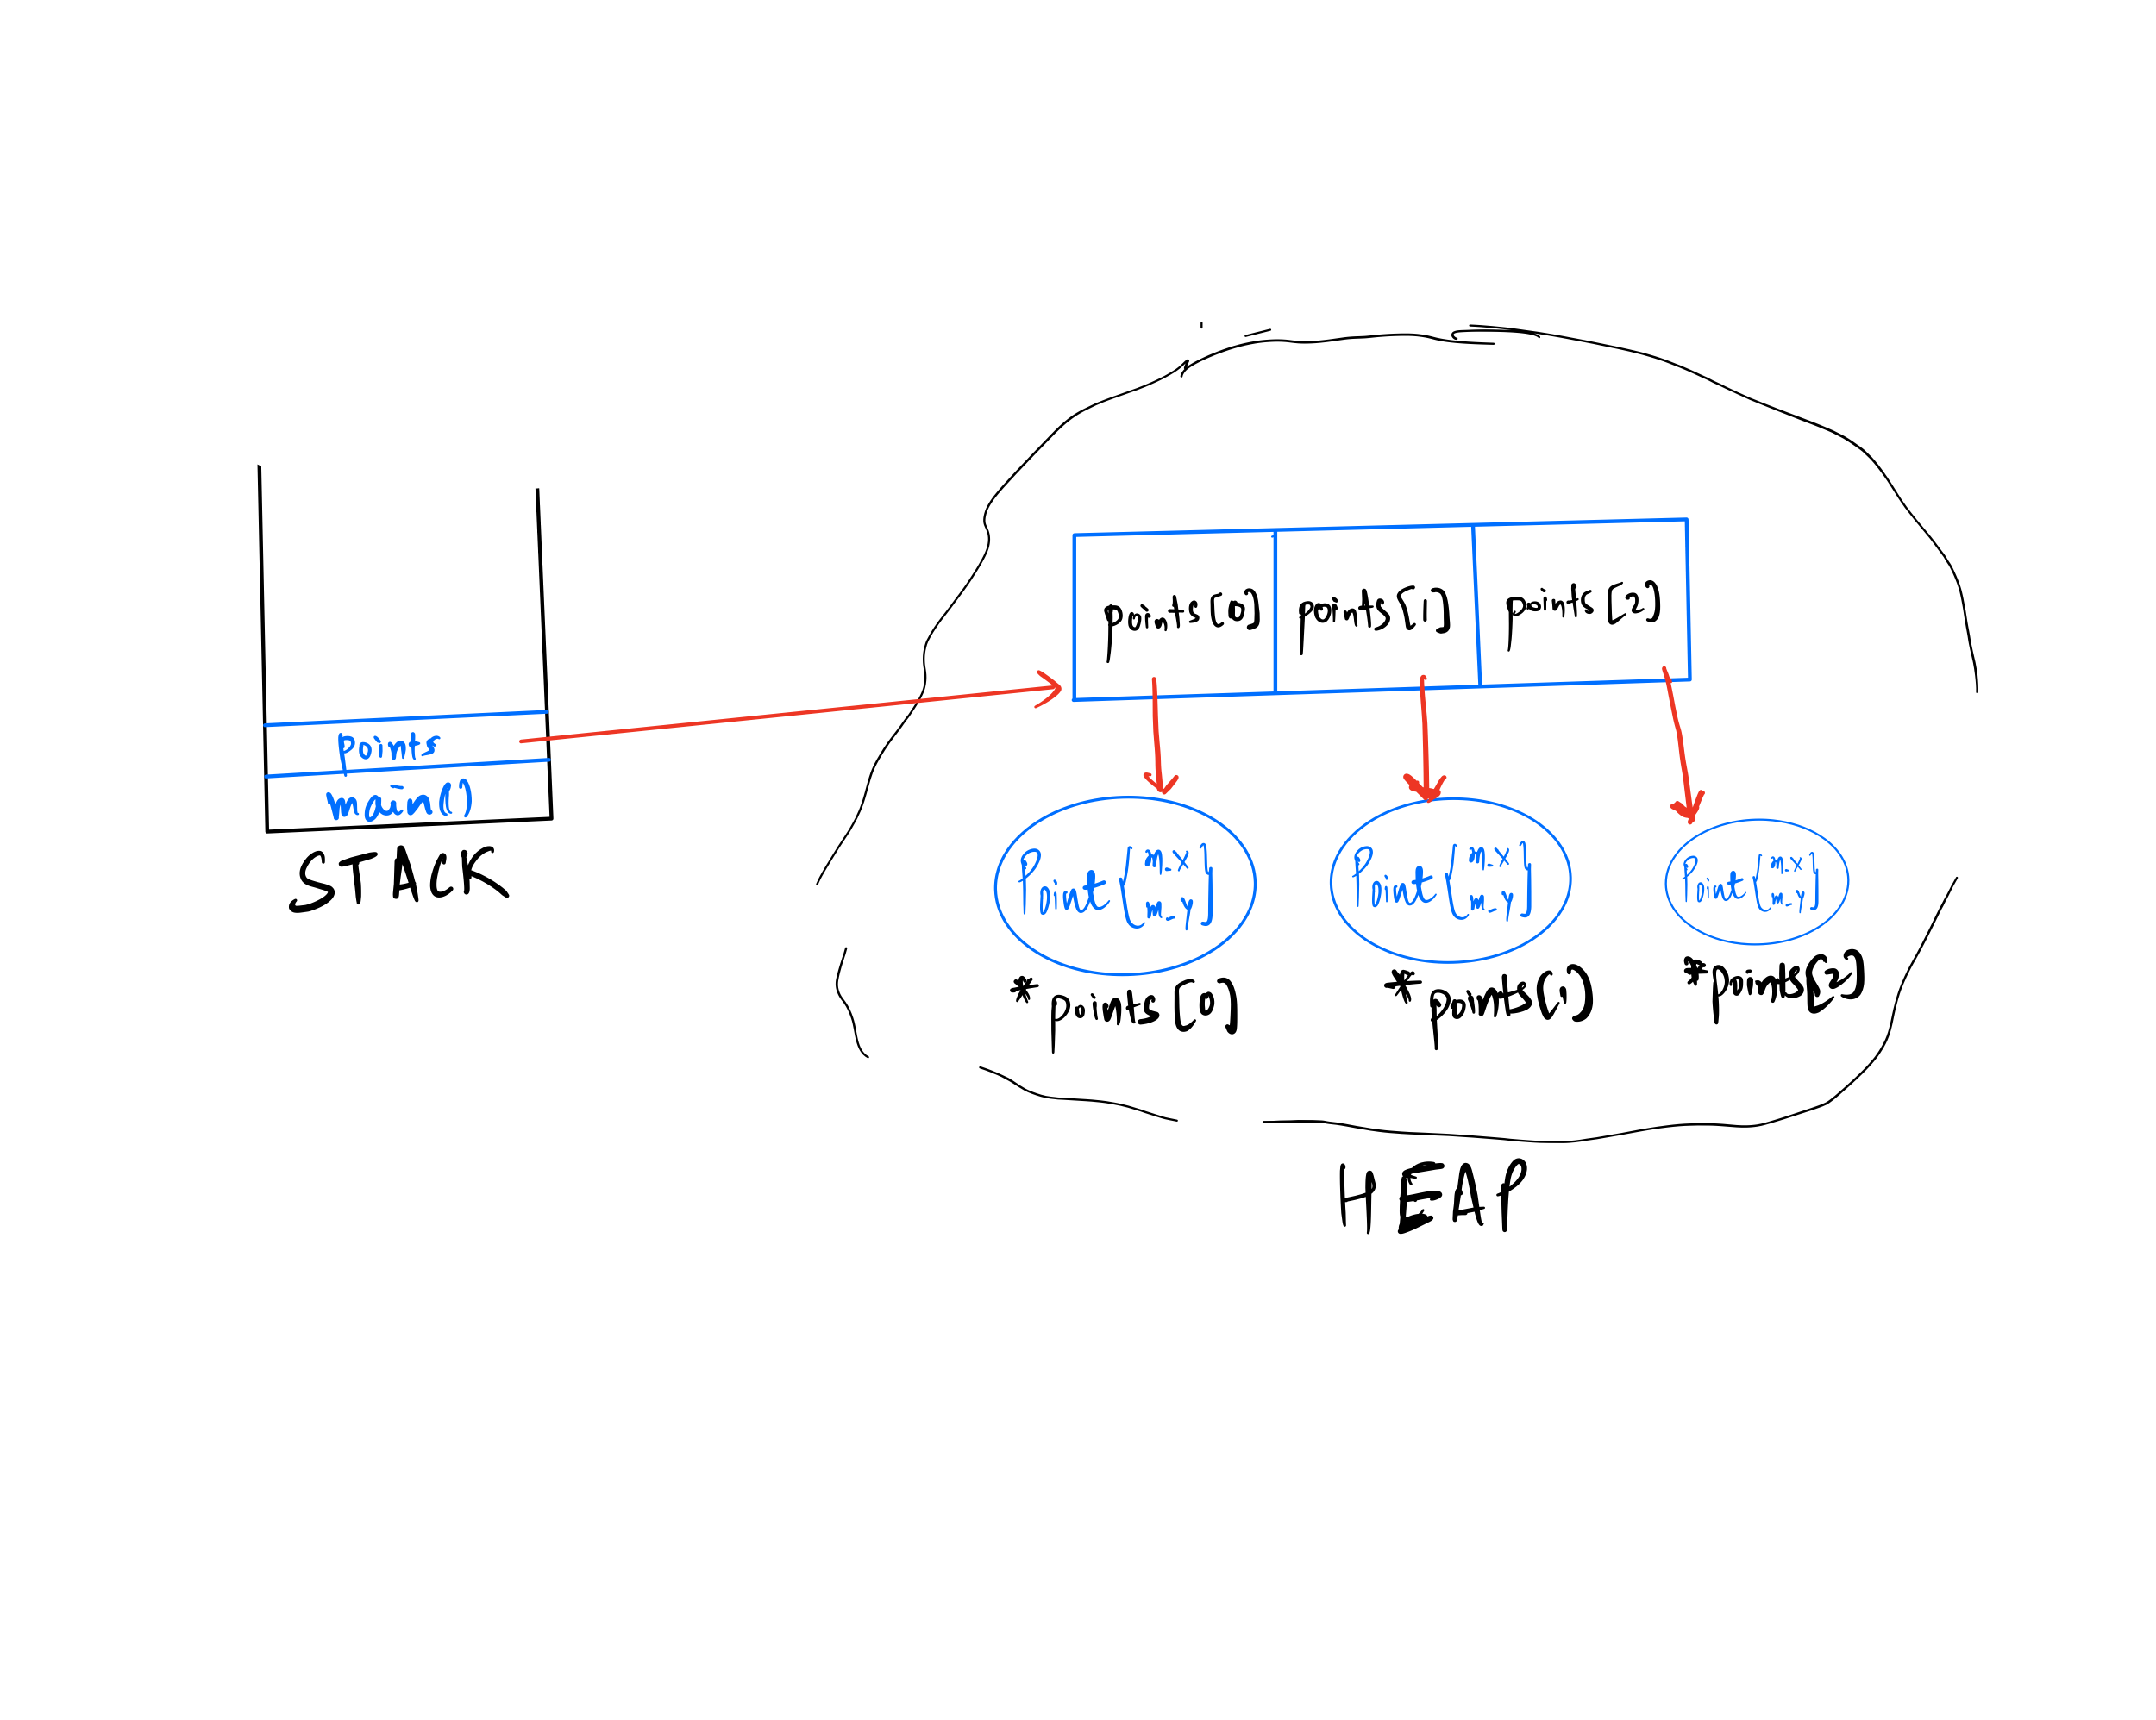 points
main()
STACK
points[0] points[1] points[2]
Point{m_x
m_y}
Point{m_x
m_y}
Point{m_x
m_y}
*points[0] *points[1] *points[2]
HEAP